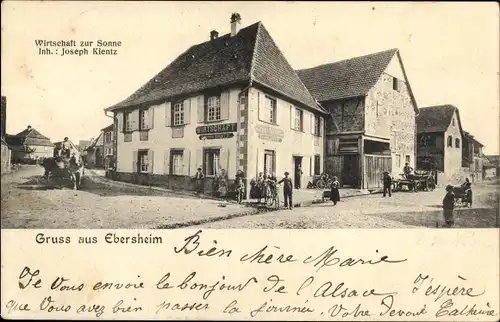 Wirtschaft zur Sonne
Inh.: Joseph Kientz
WIRTSCHAFT
Gruss aus Ebersheim
Bien chère Marie
Je Vous envoie le bonjour de l'Alsace J'éspère
que Vous avez bien passer la journée. Votre Devoué Catherine